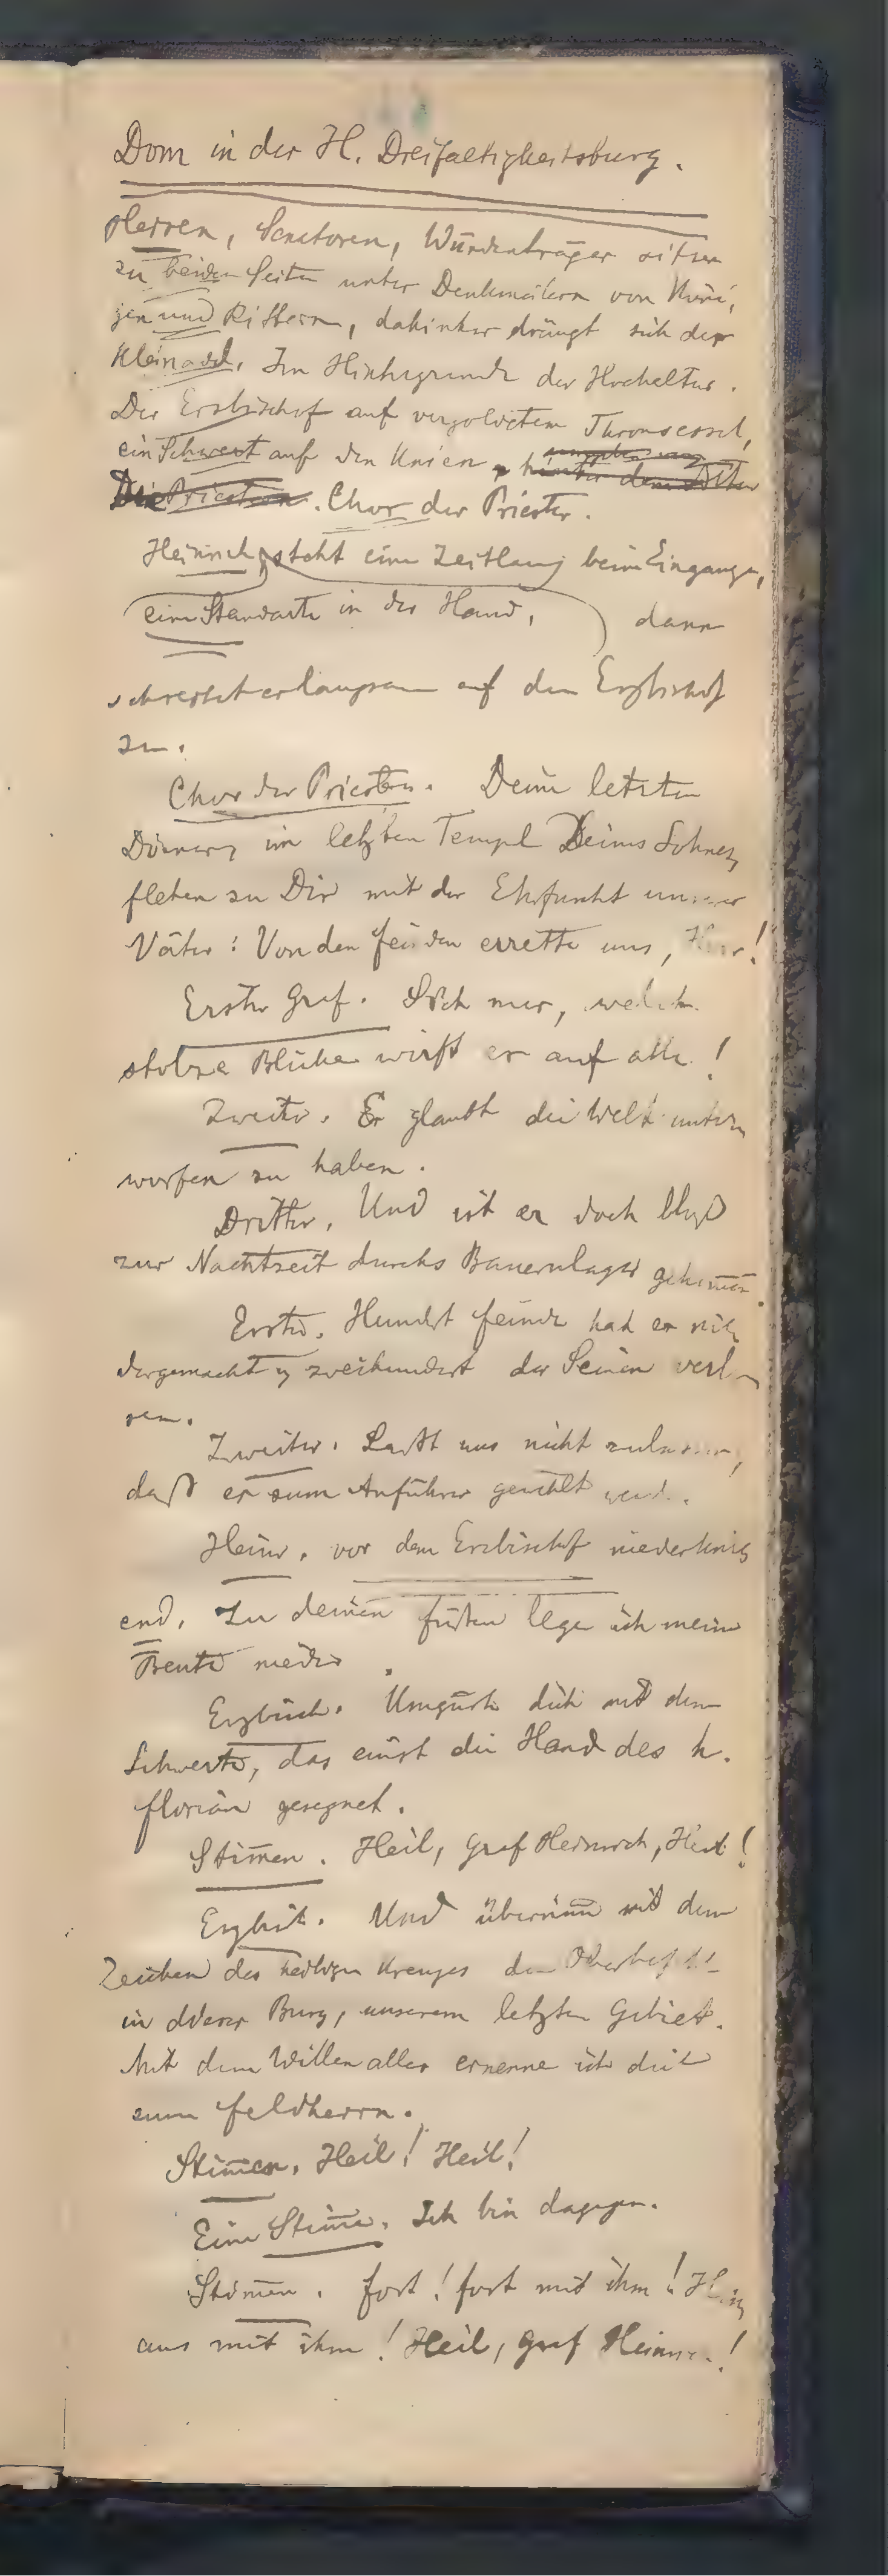 Dom in der H. Dreifaltigkeitsburg.
Herren, Senatoren, Würdenträger sitzen
zu beiden Seiten unter Denkmälern von Köni,
gen und Rittern, dahinter drängt sich der
Kleinadel. Im Hintergrunde der Hochaltar.
Der Erzbischof auf vergoldetem Thronsessel,
ein Schwert auf den Knien, hinter dem Altar
Die Priestern. Chor der Priester.
Heinrich steht eine Zeitlang beim Eingange,
eine Standarte in der Hand, dann
schreitet er langsam auf den Erzbischof
zu.
Chor der Priester. Deine letzten
Diener, im letzten Tempel Deines Sohnes,
flehen zu Dir mit der Ehrfurcht unserer
Väter: Von den Feinden errette uns, Herr!
Erster Graf. Sieh nur, welch
stolze Blicke wirft er auf alle!
Zweiter. Er glaubt die Welt unter,
worfen zu haben.
Dritter. Und ist er doch bloß
zur Nachtzeit durchs Bauernlager gekom̅en.
Erster. Hundert Feinde hat er nie,
dergemacht u. zweihundert der Seinen verlo,
ren.
Zweiter. Laßt uns nicht zulassen,
daß er zum Anführer gewählt werde.
Heinr. vor dem Erzbischof niederkni,
end. Zu deinen Füßen lege ich meine
Beute nieder.
Erzbisch. Umgürte dich mit dem
Schwerte, das einst die Hand des h.
Florian gesegnet.
Stim̅en. Heil, Graf Heinrich, Heil!
Erzbisch. Und übernim̅ mit dem
Zeichen des heiligen Kreuzes den Oberbefehl
in dieser Burg, unserem letzten Gebiet.
Mit dem Willen aller ernenne ich dich
zum Feldherrn.
Stim̅en. Heil! Heil!
Eine Stim̅e. Ich bin dagegen.
Stim̅en. Fort! fort mit ihm! Hin,
aus mit ihm! Heil, Graf Heinr.!